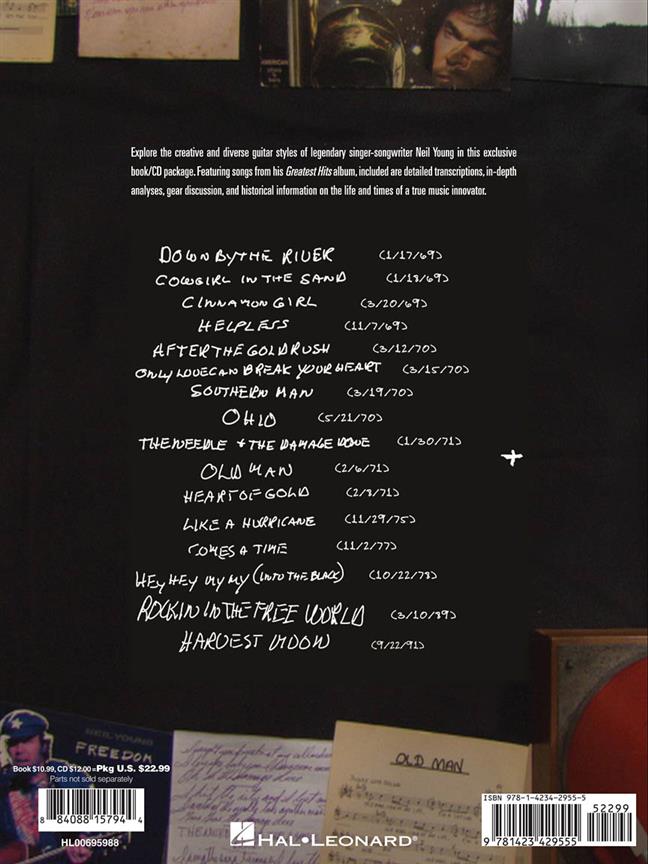 AMERICAN
Explore the creative and diverse guitar styles of legendary singer-songwriter Neil Young in this exclusive
book/CD package. Featuring songs from his Greatest Hits album, included are detailed transcriptions, in-depth
analyses, gear discussion, and historical information on the life and times of a true music innovator.
DOWN BY THE RIVER (1/17/69)
COWGIRL IN THE SAND (1/18/69)
CINNAMON GIRL (3/20/69)
HELPLESS (11/7/69)
AFTER THE GOLD RUSH (3/12/70)
ONLY LOVE CAN BREAK YOUR HEART (3/15/70)
SOUTHERN MAN (3/19/70)
OHIO (5/21/70)
THE NEEDLE + THE DAMAGE DONE (1/30/71)
+
OLD MAN (2/6/71)
HEART OF GOLD (2/8/71)
LIKE A HURRICANE (11/29/75)
COMES A TIME (11/2/77)
HEY HEY MY MY (INTO THE BLACK) (10/22/78)
ROCKIN IN THE FREE WORLD (3/10/89)
HARVEST MOON (9/22/91)
NEIL YOUNG
FREEDOM
OLD MAN
Book $10.99, CD $12.00 = Pkg U.S. $22.99
Parts not sold separately
8 84088 15794 4
HL00695988
HAL•LEONARD®
ISBN 978-1-4234-2955-5
52299
9 781423 429555